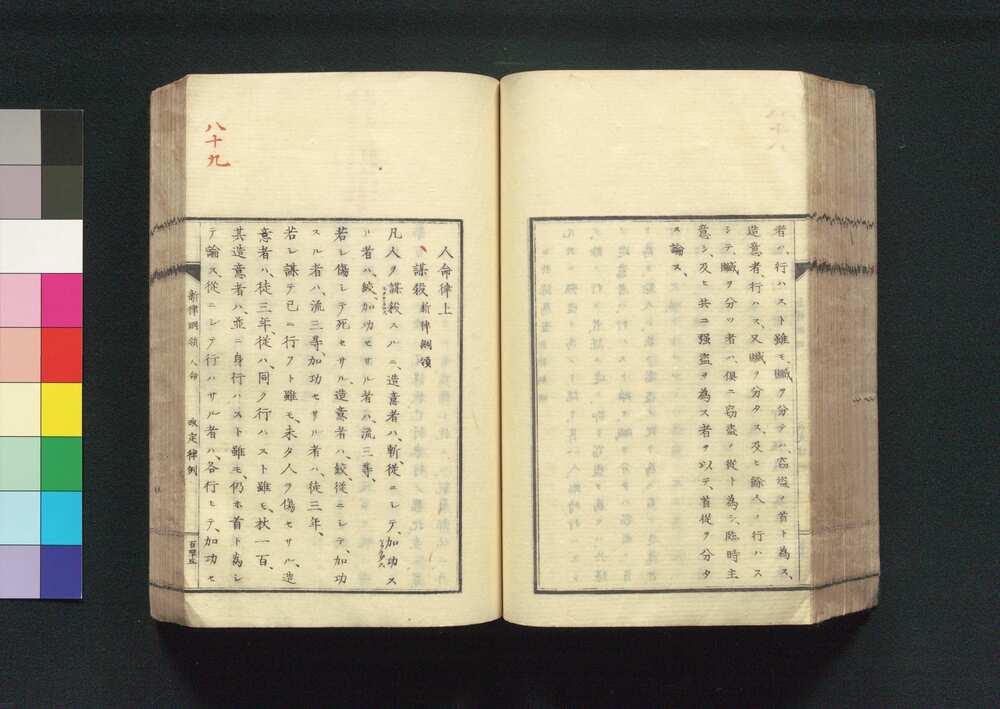 者ハ、行ハスト雖モ、贓ヲ分テハ、窃盗ノ首ト為ス、
造意者、行ハス、又贓ヲ分タス、及ヒ餘人ノ行ハス
シテ、贓ヲ分ツ者ハ、倶ニ窃盗ノ從ト為シ、臨時主
意シ、及ヒ共ニ強盗ヲ為ス者ヲ以テ、首從ヲ分タ
ス論ス、
人命律上
謀殺 新律綱領
凡人ヲ謀殺スルニ、造意者ハ、斬、從ニシテ、加功ス
ル者ハ、絞、加功セサル者ハ、流三等、
若シ傷シテ死セサル、造意者ハ、絞、從ニシテ、加功
スル者ハ、流三等、加功セサル者ハ、徒三年、
若シ謀テ已ニ行フト雖モ、未タ人ヲ傷セサル、造
意者ハ、徒三年、從ハ、同ク行ハスト雖モ、杖一百、
其造意者ハ、並ニ身行ハスト雖モ、仍ホ首ト為シ
テ論ス、從ニシテ行ハサル者ハ、各行ヒテ、加功セ
八十九
新律綱領 人命 改定律例